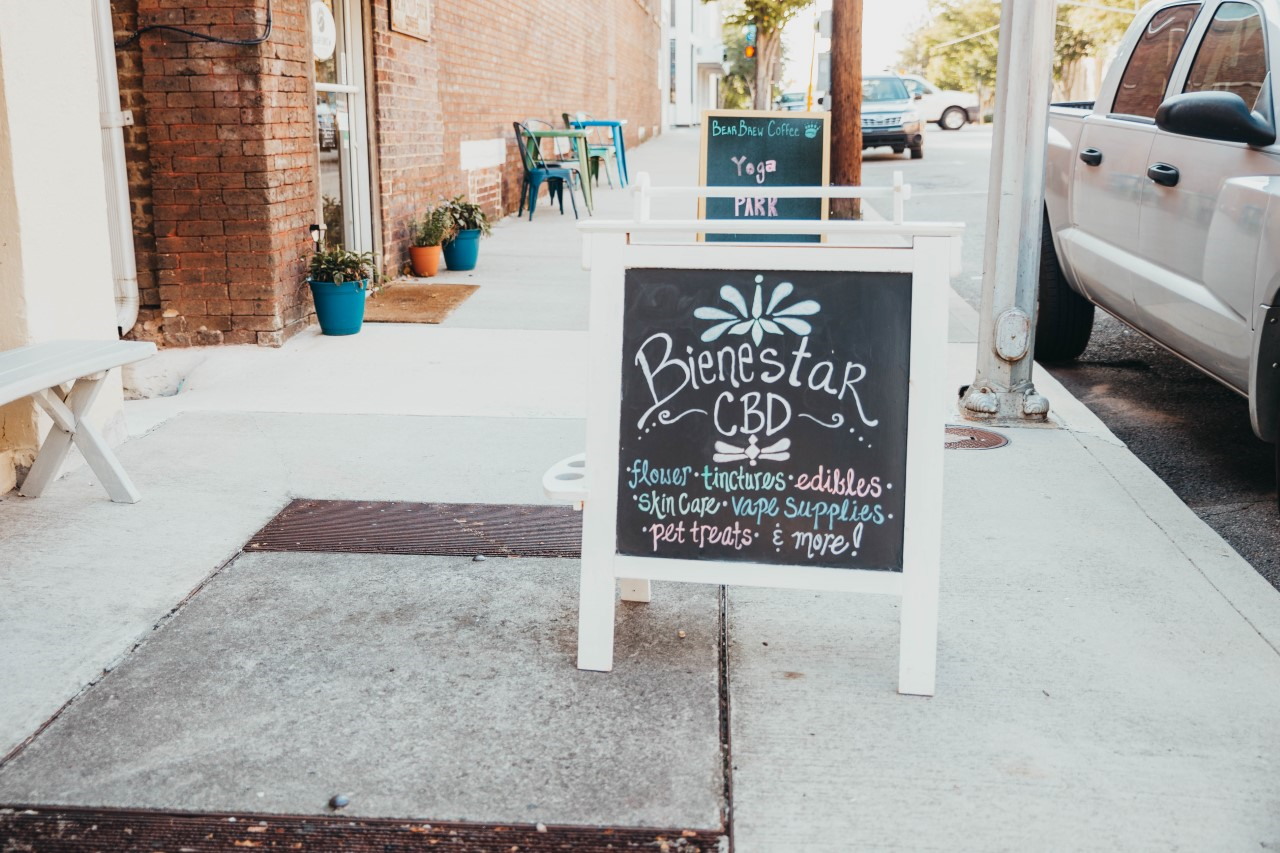 Bear Brew Coffee
Yoga
PARK
Bienestar
CBD
·flower·tinctures·edibles·
·skin care·vape supplies·
·pet treats· & more!